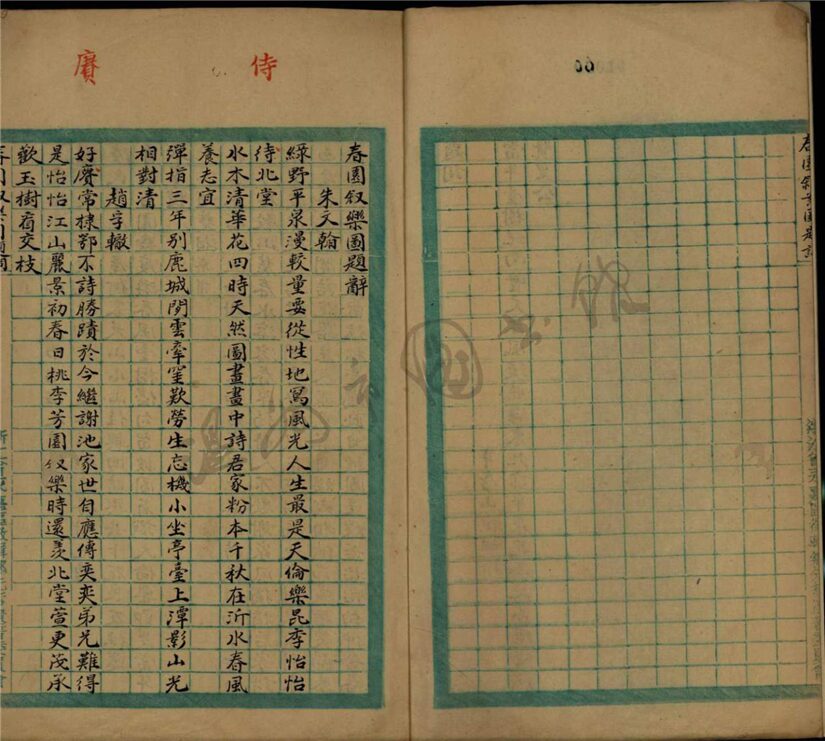 侍
賡
春園叙樂圖題辭
朱文翰
綠野平泉漫較量要從性地寫風光人生最是天倫樂昆季怡怡
待北堂
水木清華花四時天然圖畫畫中詩君家粉本千秋在沂水春風
養志宜
彈指三年别鹿城閒雲牽歎勞生忘機小坐亭臺上潭影山光
相對清
趙轍
好賡常棣鄂不詩勝蹟於今繼謝池家世自應傳奕奕弟兄難得
是怡怡江山麗景初春日桃李芳園叙樂時還羨北堂萱更茂承
歡玉樹看交枝
温州市图书馆